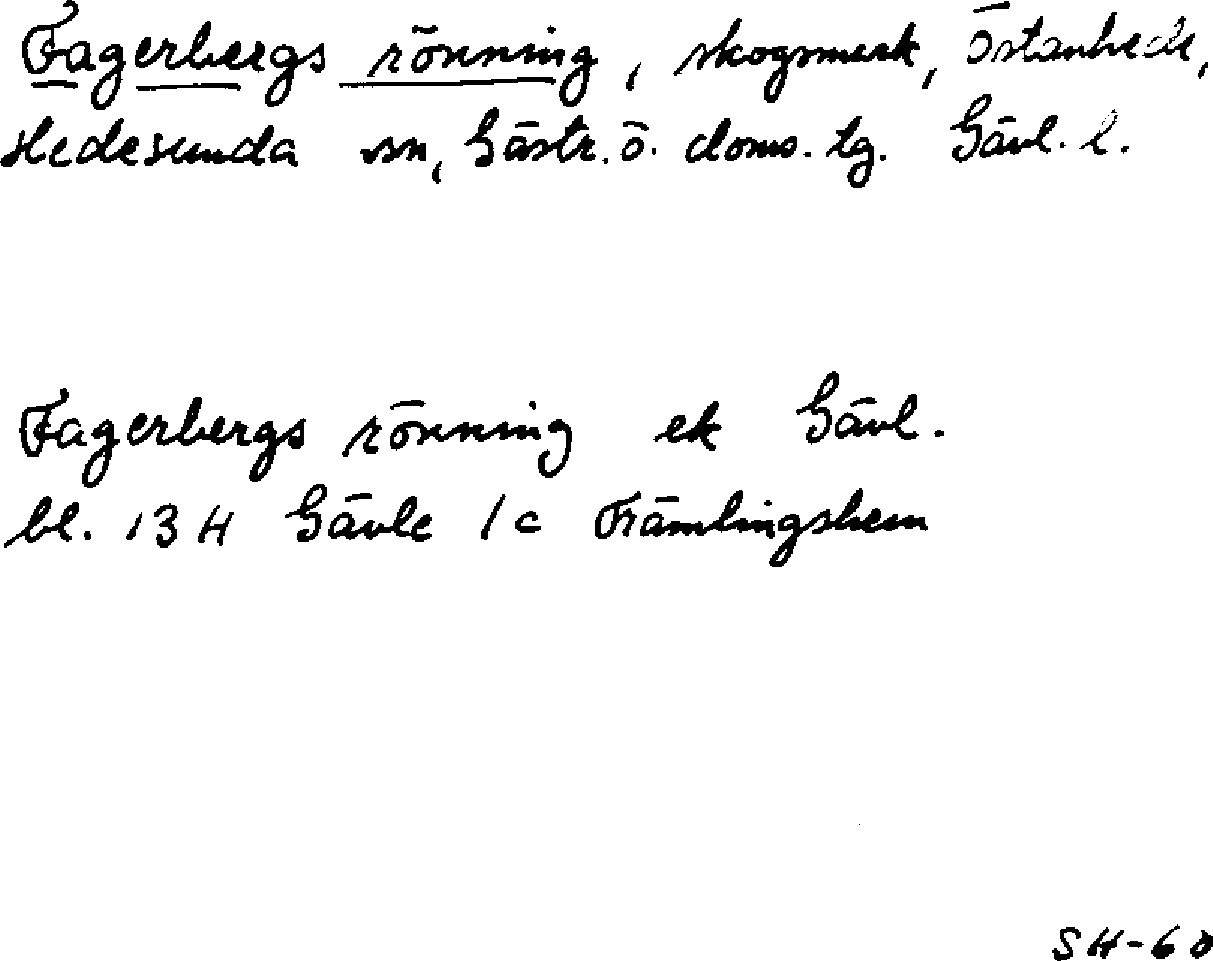 Fagerbergs rönning, skogsmark, Östanhede,
Hedesunda sn, Gästr. ö. doms. tg. Gävl. l.
Fagerbergs rönning ek Gävl.
bl. 13 H Gävle 1 c Främlingshem
SH-60